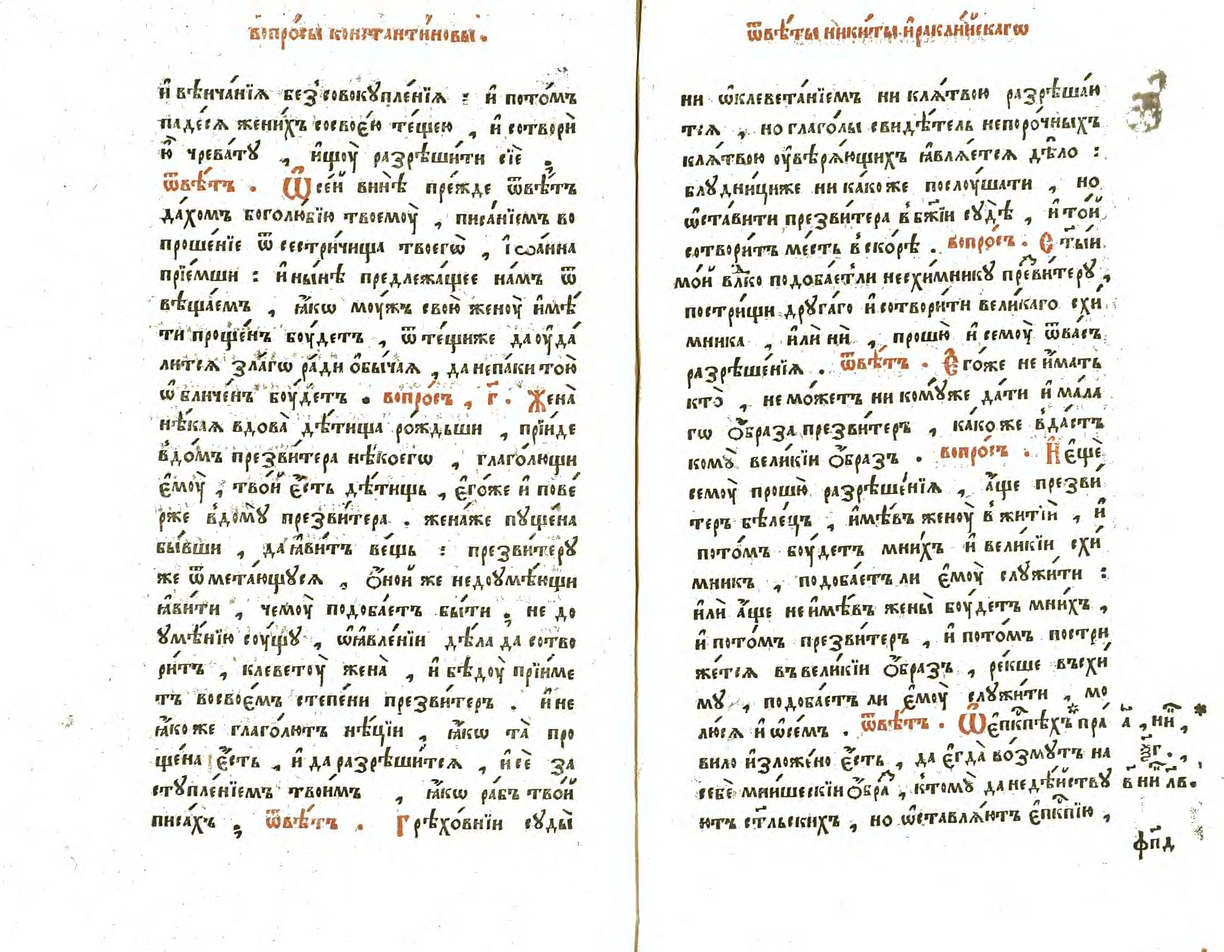 вопро́сы константи́новы.
и҆ вѣнча́нїѧ без̾совокꙋпле́нїѧ : и҆ пото́мъ
паде́сѧ жени́хъ сосвое́ю те́щею , и҆ сотворѝ
ю҆̀ чрева́тꙋ , и҆щꙋ̀ разрѣши́ти сїѐ .
ѿвѣ́тъ . Ѡ҆ се́й винѣ̀ пре́жде ѿвѣ́тъ
да́хомъ боголю́бїю твоемоу̀ , писа́нїемъ во
проше́нїе ѿ сестри́чища твоегѡ̀ , і҆ѡа́нна
прїе́мши : и҆ ны́нѣ предлежа́щее на́мъ ѿ
вѣща́емъ , ꙗ҆́кѡ моу́жъ свою̀ женоу̀ и҆мѣ́
ти проще́нъ боу́детъ , ѿ те́щиже да оу҆да
ли́тсѧ зла́гѡ ра́ди ѻ҆бы́чаѧ , да непа́ки то́ю
ѡ҆бличе́нъ боу́детъ . вопро́съ , г҃ . Жена̀
нѣ́каѧ вдова̀ дѣ́тища ро́ждьши , прїи́де
вдо́мъ презви́тера нѣ́коегѡ , глаго́лющи
є҆моу̀ , тво́й є҆́сть дѣ́тищь , є҆го́же и҆ пове́
рже вдомꙋ̀ презви́тера . жена́же пꙋще́на
бы́вши , да ꙗ҆ви́тъ ве́щь : презви́терꙋ
же ѿмета́ющꙋсѧ , ѻ҆́ной же недоꙋмѣ́ющи
ꙗ҆ви́ти , чемоу̀ подоба́етъ бы́ти ; не до
ꙋмѣ́нїю соу́щꙋ , ѡ҆ꙗ҆вле́нїи дѣ́ла да сотво
ри́тъ , клеветоу̀ жена̀ , и҆ бѣ́доу прїи́ме
тъ восвое́мъ степе́ни презви́теръ . и҆ не
ꙗ҆́коже глаго́лютъ нѣ́цїи , ꙗ҆́кѡ та̀ про
ще́на є҆́сть , и҆ да разрѣши́тсѧ , и҆ сѐ за
стꙋпле́нїемъ твои́мъ , ꙗ҆́кѡ ра́бъ тво́й
писа́хъ ; ѿвѣ́тъ . Грѣхо́внїи сꙋды̀
ѿвѣ́ты ники́ты и҆ракли́йскагѡ
ни ѡ҆клевета́нїемъ ни клѧ́твою разрѣша́ю
тсѧ , но глаго́лы свидѣ́тель непоро́чныхъ
клѧ́твою оу҆вѣрѧ́ющихъ ꙗ҆влѧ́етсѧ дѣ́ло :
блꙋдни́циже ника́коже послоу́шати , но
ѡ҆ста́вити презви́тера вбж҃їи сꙋдѣ̀ , и҆ то́й
сотвори́тъ ме́сть вско́рѣ . вопро́съ . С҃ты́и
мо́й влⷣко подоба́етли несхи́мникꙋ пре́витерꙋ ,
постри́щи дрꙋга́го и҆ сотвори́ти вели́каго схи́
мника , и҆лѝ нѝ , прошю̀ и҆ семоу̀ ѿва́съ
разрѣше́нїѧ . ѿвѣ́тъ . Є҆го́же не и҆́мать
кто̀ , не мо́жетъ ни комꙋ́же да́ти и҆ ма́ла
гѡ ѻ҆́браза презви́теръ , ка́коже вда́стъ
комꙋ̀ вели́кїи ѻ҆́бразъ . вопро́съ . И҆ є҆щѐ
семоу̀ прошю̀ разрѣше́нїѧ , а҆́ще презви́
теръ бѣле́цъ , и҆мѣ́въ женоу̀ вжитїѝ , и҆
пото́мъ боу́детъ мни́хъ и҆ вели́кїи схи́
мникъ , подоба́етъ ли є҆моу̀ слꙋжи́ти :
и҆лѝ а҆́ще не и҆мѣ́въ жены̀ боу́детъ мни́хъ ,
и҆ пото́мъ презви́теръ , и҆ пото́мъ постри
же́тсѧ ввели́кїи ѻ҆́бразъ , ре́кше въсхи́
мꙋ , подоба́етъ ли є҆моу̀ слꙋжи́ти , мо
лю́сѧ и҆ ѡ҆се́мъ . ѿвѣ́тъ . Ѡ҆ є҆пкⷭ҇пѣхъ* пра́
вило и҆зложе́но є҆́сть , да є҆гда̀ во́змꙋтъ на
себѐ мни́шескїи ѻ҆́браⷥ , ктомꙋ̀ да недѣ́йствꙋ
ютъ ст҃льскихъ , но ѡ҆ставлѧ́ютъ є҆пкⷭ҇пїю ,
фп҃д